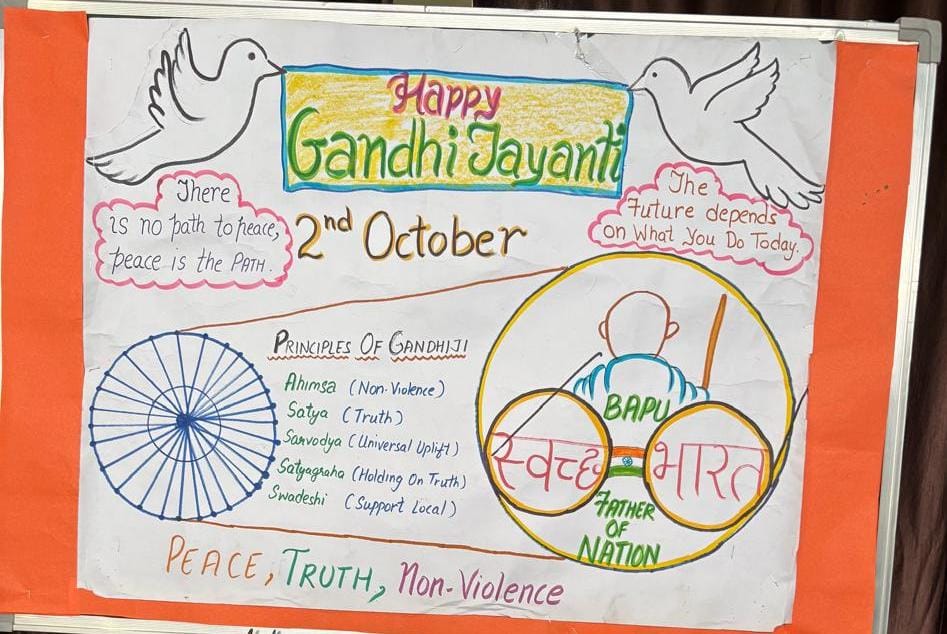 Happy
Gandhi Jayanti
There
is no path to peace,
peace is the PATH.
2nd October
The
Future depends
on What You Do Today.
PRINCIPLES OF GANDHIJI
Ahimsa (Non-Violence)
Satya (Truth)
Sarvodya (Universal Uplift)
Satyagraha (Holding On Truth)
Swadeshi (Support Local)
BAPU
स्वच्छ भारत
FATHER
OF
NATION
PEACE, TRUTH, Non-Violence